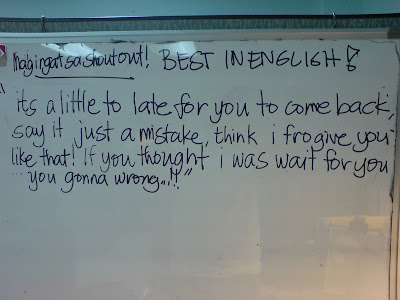 ingatsa shoutout! BEST IN ENGLISH!
its a little to late for you to come back,
say it just a mistake, think i frogive you
like that! If you thought i was wait for you
... you gonna wrong...!!"